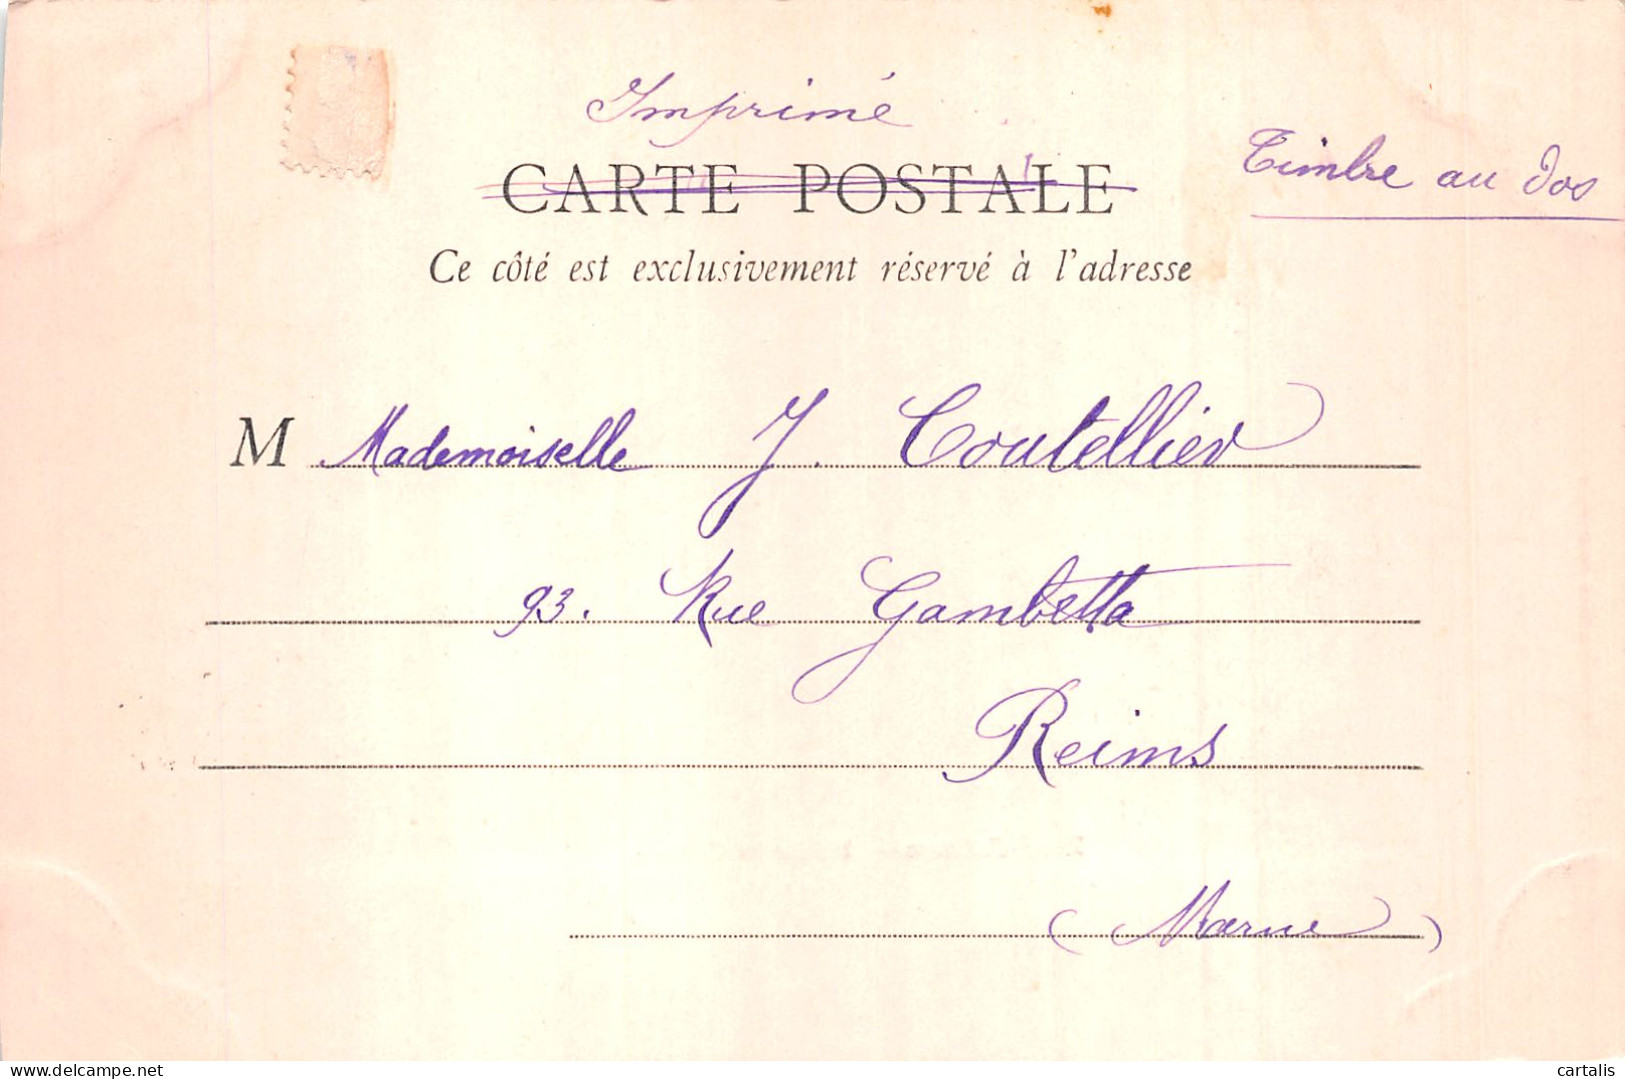 Imprimé
CARTE POSTALE
Timbre au dos
Ce côté est exclusivement réservé à l'adresse
M Mademoiselle J. Coutellier
93. Rue Gambetta
Reims
(Marne)
www.delcampe.net
cartalis